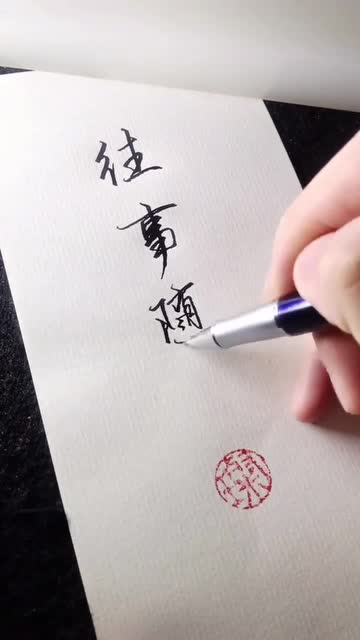 往事随